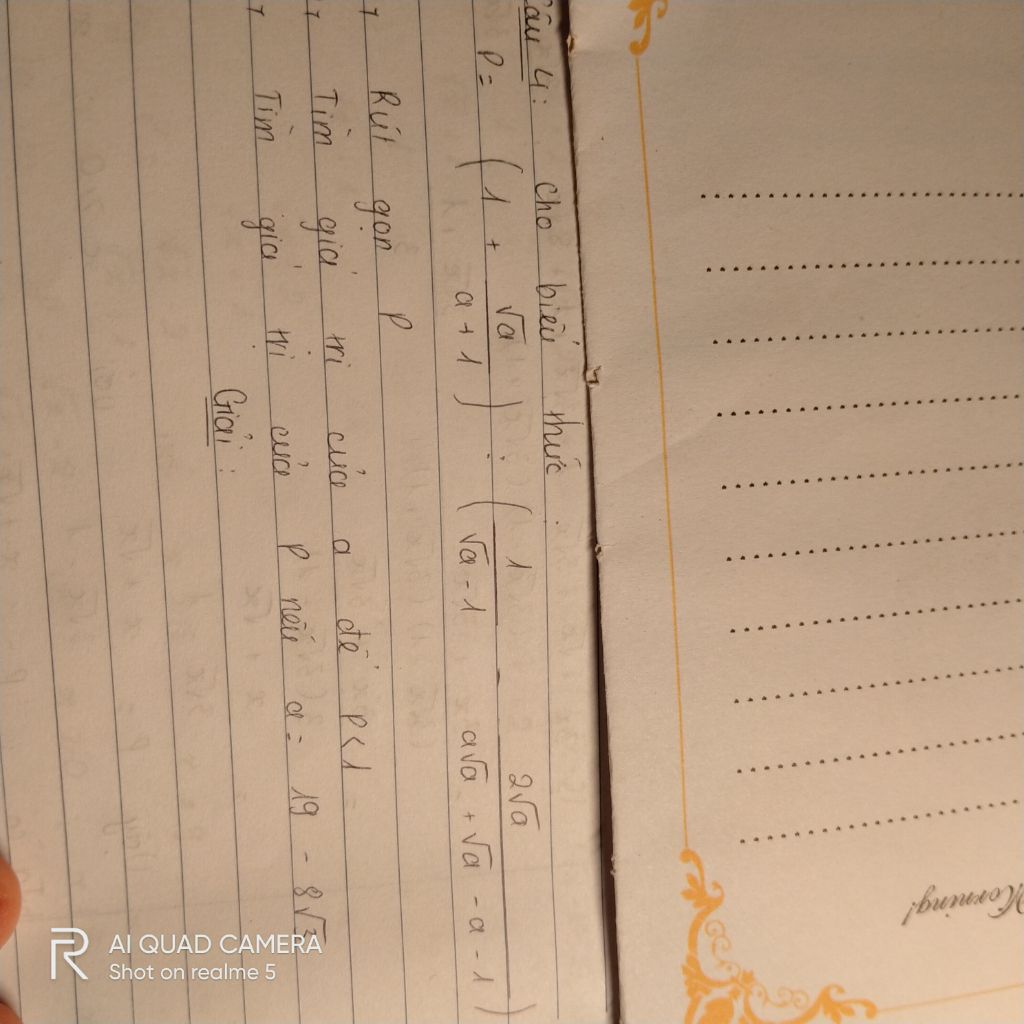 Câu 4: Cho biểu thức
P = (1 + √a / a + 1) : (1 / √a - 1 - 2√a / a√a + √a - a - 1)
Rút gọn P
Tìm giá trị của a để P < 1
Tìm giá trị của P nếu a = 19 - 8√3
Giải:
Morning!
AI QUAD CAMERA
Shot on realme 5